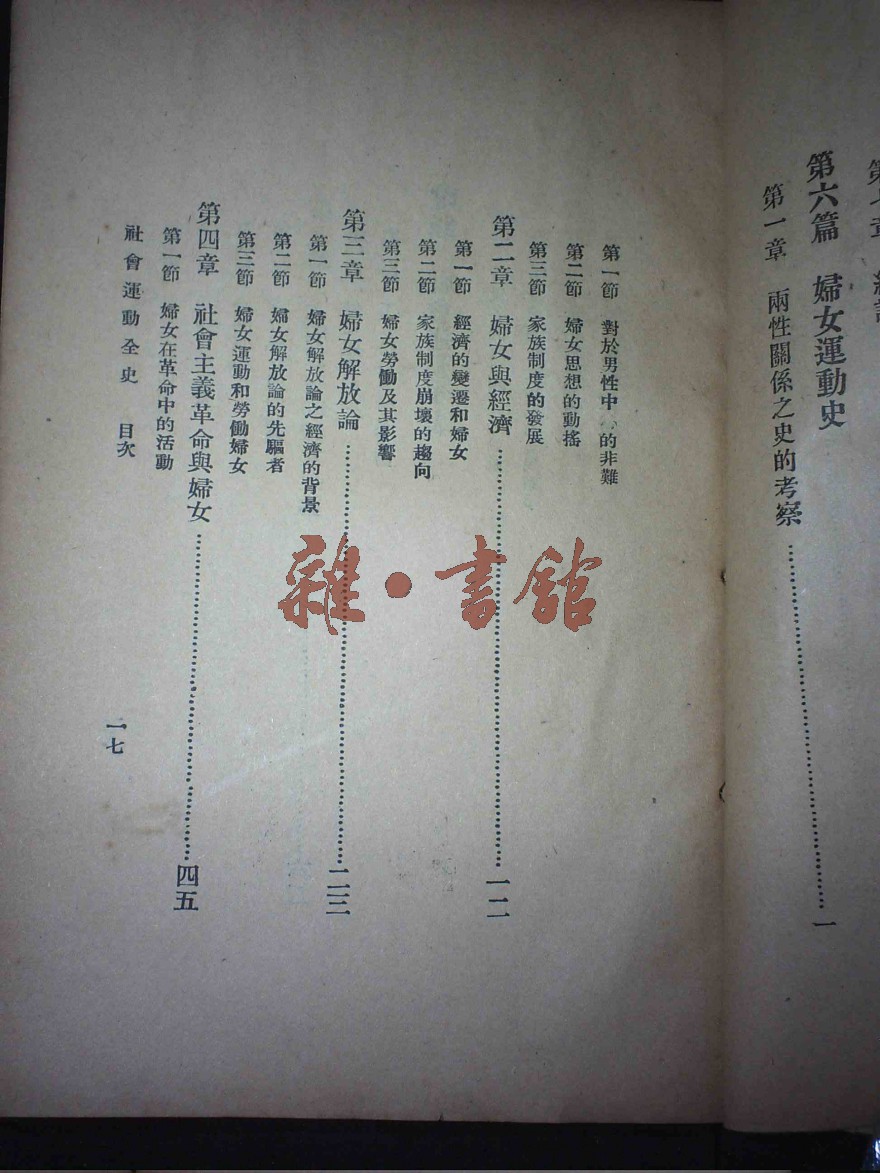 第六篇 婦女運動史
第一章 兩性關係之史的考察…………一
第一節 對於男性中 的非難
第二節 婦女思想的動搖
第三節 家族制度的發展
第二章 婦女與經濟…………一二
第一節 經濟的變遷和婦女
第二節 家族制度崩壞的趨向
第三節 婦女勞働及其影響
第三章 婦女解放論…………二三
第一節 婦女解放論之經濟的背景
第二節 婦女解放論的先驅者
第三節 婦女運動和勞働婦女
第四章 社會主義革命與婦女…………四五
第一節 婦女在革命中的活動
社會運動全史 目次
一七
雜·書館